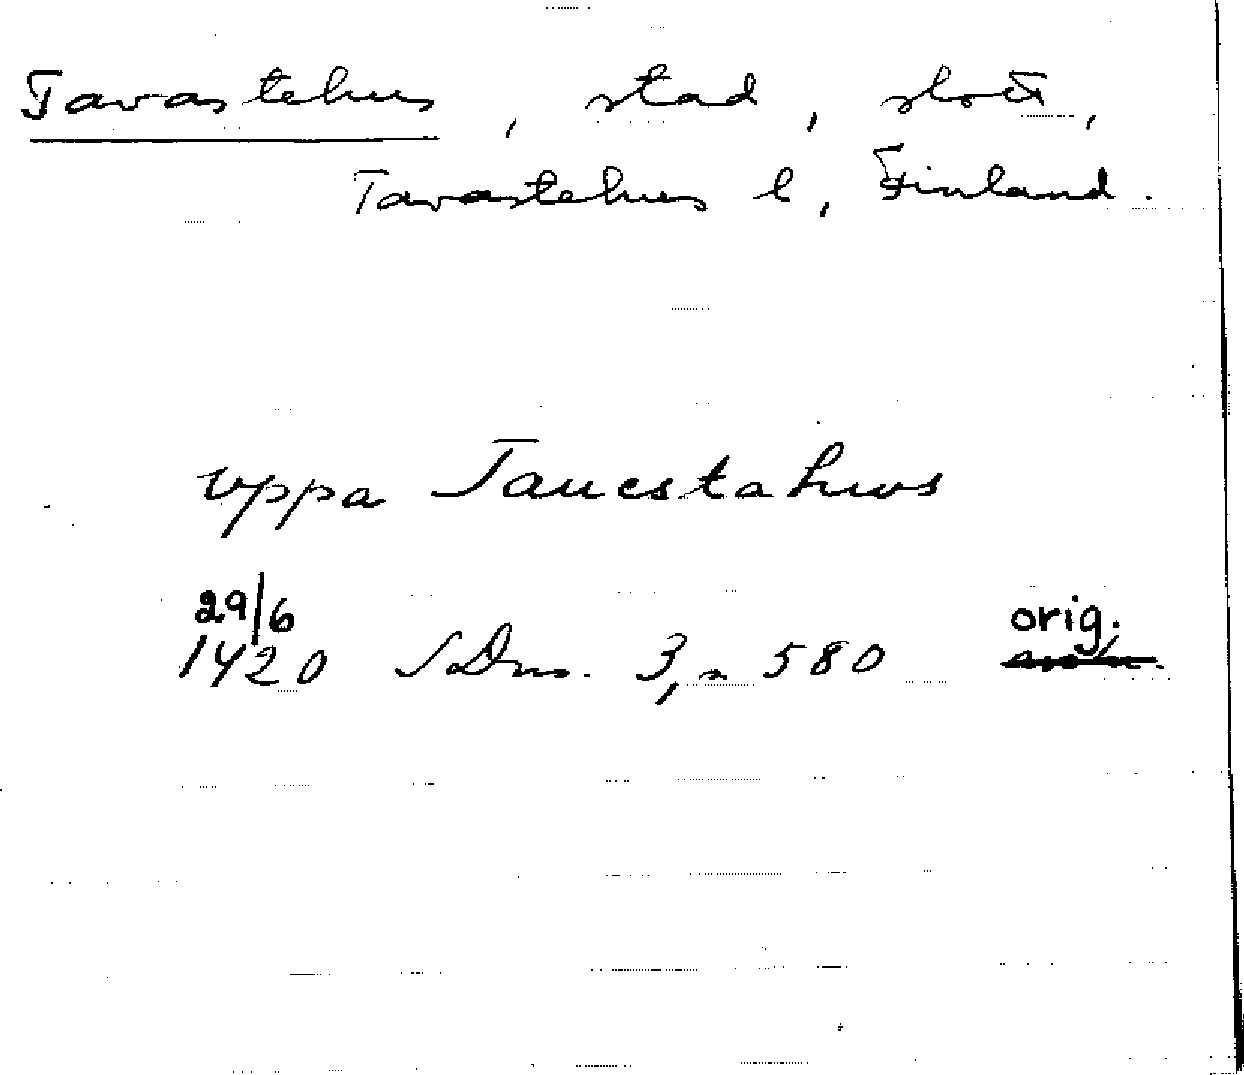 Tavastehus, stad, slott,
Tavastehus l, Finland.
vppa Tauestahws
29/6
1420 SDns. 3, n 580 orig.